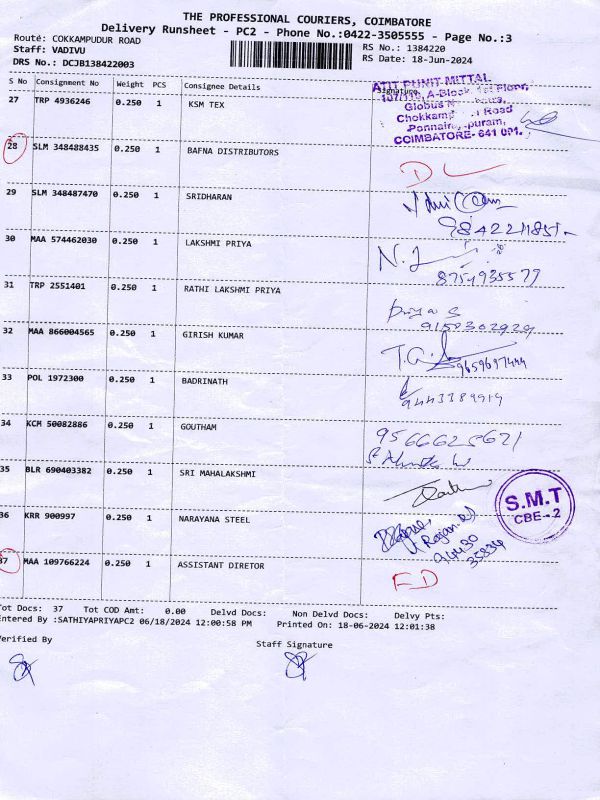 THE PROFESSIONAL COURIERS, COIMBATORE
Delivery Runsheet - PC2 - Phone No.:0422-3505555 - Page No.:3
Routé: COKKAMPUDUR ROAD RS No.: 1384220
Staff: VADIVU RS Date: 18-Jun-2024
DRS No.: DCJB138422003
S No Consignment No Weight PCS Consignee Details Signature
ATIT PUNIT MITTAL
A-Block, 1st Floor,
Globus
Chokkam Road
Ponnaiy puram,
COIMBATORE- 641 001.
27 TRP 4936246 0.250 1 KSM TEX
28 SLM 348488435 0.250 1 BAFNA DISTRIBUTORS
29 SLM 348487470 0.250 1 SRIDHARAN
30 MAA 574462030 0.250 1 LAKSHMI PRIYA 8754935577
31 TRP 2551401 0.250 1 RATHI LAKSHMI PRIYA Priya S
9150302929
32 MAA 866004565 0.250 1 GIRISH KUMAR 9659697444
33 POL 1972300 0.250 1 BADRINATH 9443389914
34 KCM 50082886 0.250 1 GOUTHAM 9566625671
35 BLR 690403382 0.250 1 SRI MAHALAKSHMI
S.M.T
CBE--2
36 KRR 900997 0.250 1 NARAYANA STEEL
94430
35834
37 MAA 109766224 0.250 1 ASSISTANT DIRETOR
Tot Docs: 37 Tot COD Amt: 0.00 Delvd Docs: Non Delvd Docs: Delvy Pts:
Entered By :SATHIYAPRIYAPC2 06/18/2024 12:00:58 PM Printed On: 18-06-2024 12:01:38
Verified By Staff Signature